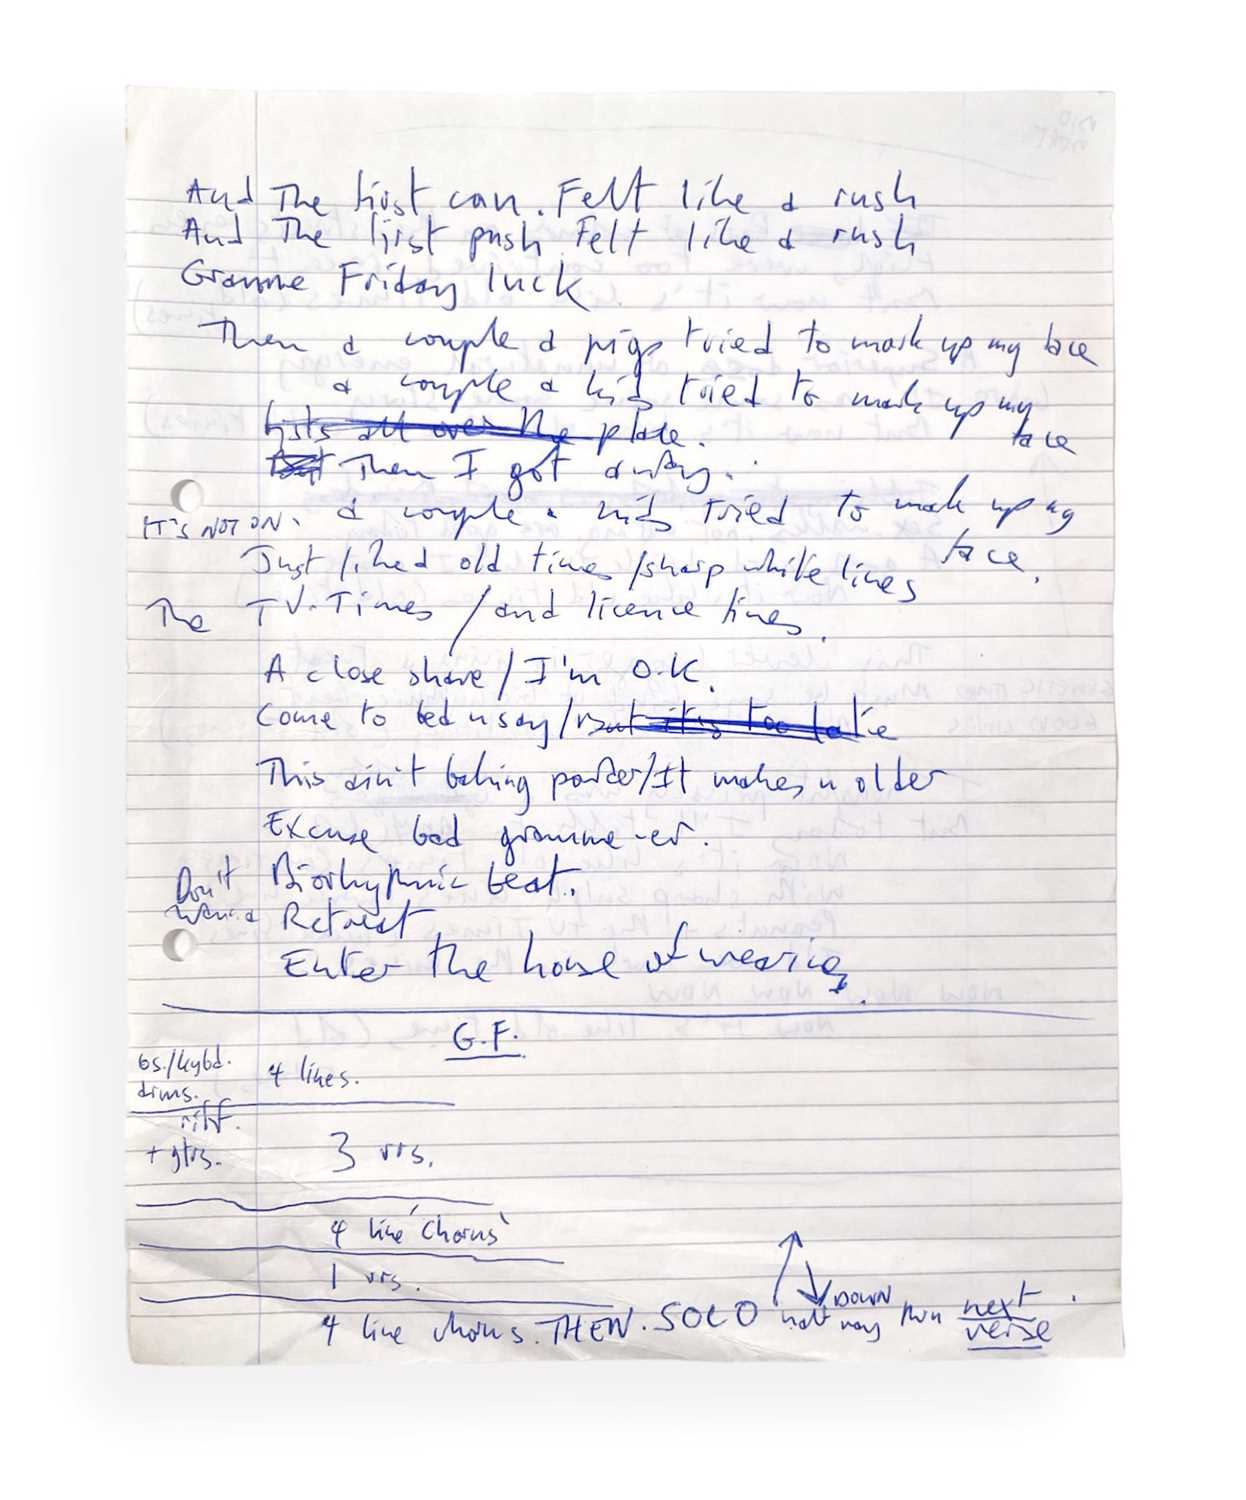 And The first can. Felt like a rush
And The first push Felt like a rush
Gramme Friday luck
Then a couple a pigs tried to mark up my face
a couple a kids tried to mark up my
face
fists all over the place.
But Then I got away.
IT'S NOT ON. a couple a kids tried to mark up my
face.
Just liked old times /sharp white lines
The TV.Times / and licence fines.
A close shave / I'm O.K.
Come to bed u say / But it's too late
This ain't baking powder/It makes u older
Excuse bad gramme-er.
Don't Biorhypmic beat.
wanna Retreat
Enter the house of wearies.
G.F.
Gs./kybd. 4 lines.
drms.
riff.
+ gtrs. 3 vrs.
4 line 'Chorus'
1 vrs.
4 line chorus. THEN. SOLO half DOWN way then next
verse